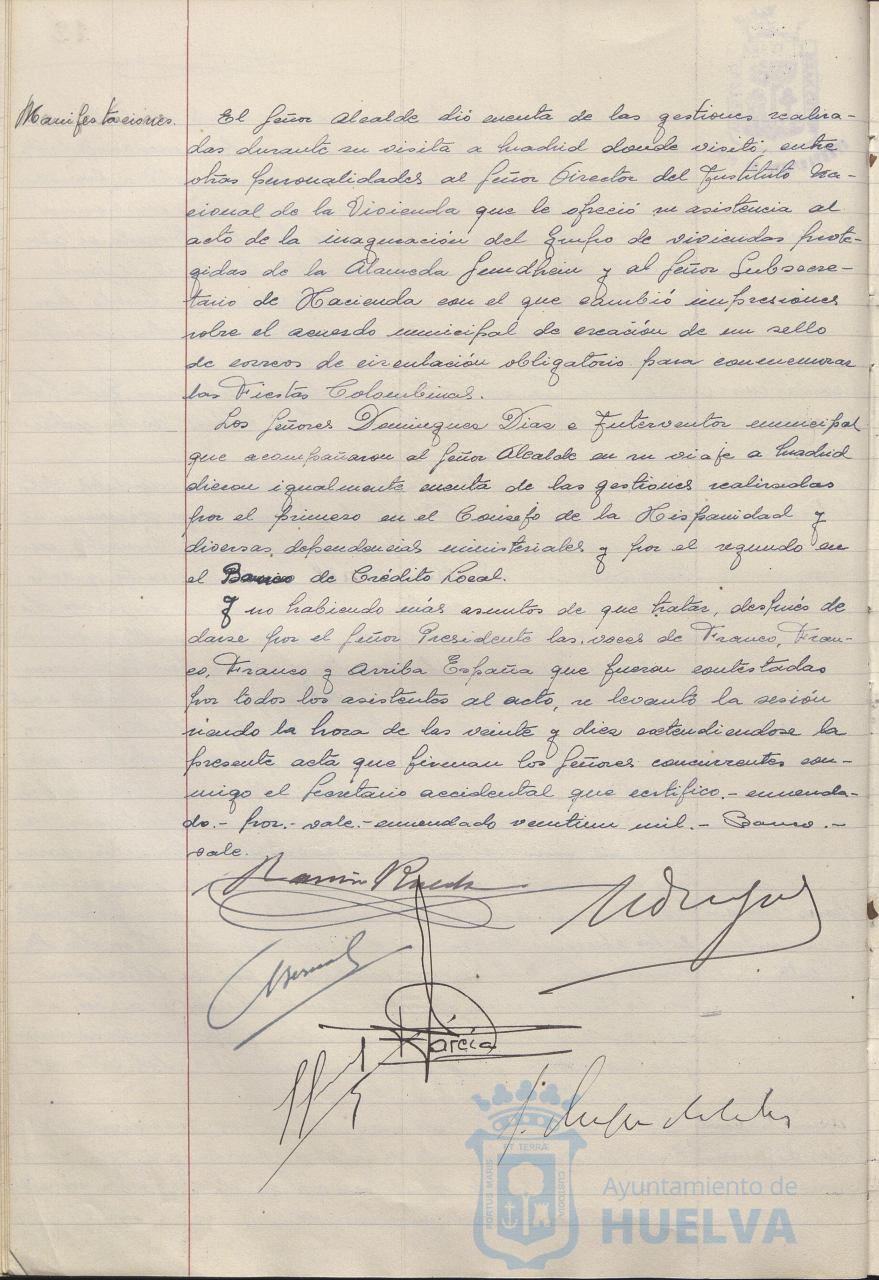 Manifestaciones.
El Señor Alcalde dió cuenta de las gestiones realiza-
das durante su visita a Madrid donde visitó entre
otras personalidades al Señor Director del Instituto Na-
cional de la Vivienda que le ofreció su asistencia al
acto de la inaguración del Grupo de viviendas prote-
gidas de la Alameda Sundhein y al Señor Subsecre-
tario de Hacienda con el que cambió impresiones
sobre el acuerdo municipal de creación de un sello
de correos de circulación obligatorio para conmemorar
las Fiestas Colombinas.
Los Señores Dominguez Diaz e Interventor municipal
que acompañaron al Señor Alcalde en su viaje a Madrid
dieron igualmente cuenta de las gestiones realizadas
por el primero en el Consejo de la Hispanidad y
diversas dependencias ministeriales y por el segundo en
el Banco de Crédito Local.
Y no habiendo más asuntos de que tratar, después de
darse por el Señor Presidente las voces de Franco, Fran-
co, Franco y Arriba España que fueron contestadas
por todos los asistentes al acto, se levantó la sesión
siendo la hora de las veinte y diez extendiendose la
presente acta que firman los Señores concurrentes con-
migo el Secretario accidental que certifico.- enmenda-
do.- por.- vale.- enmendado veintiun mil.- Banco.-
vale.
Ramón Rueda
Bernal
R García
PORTUS MARIS
ET TERRÆ
CUSTODIA
Ayuntamiento de
HUELVA